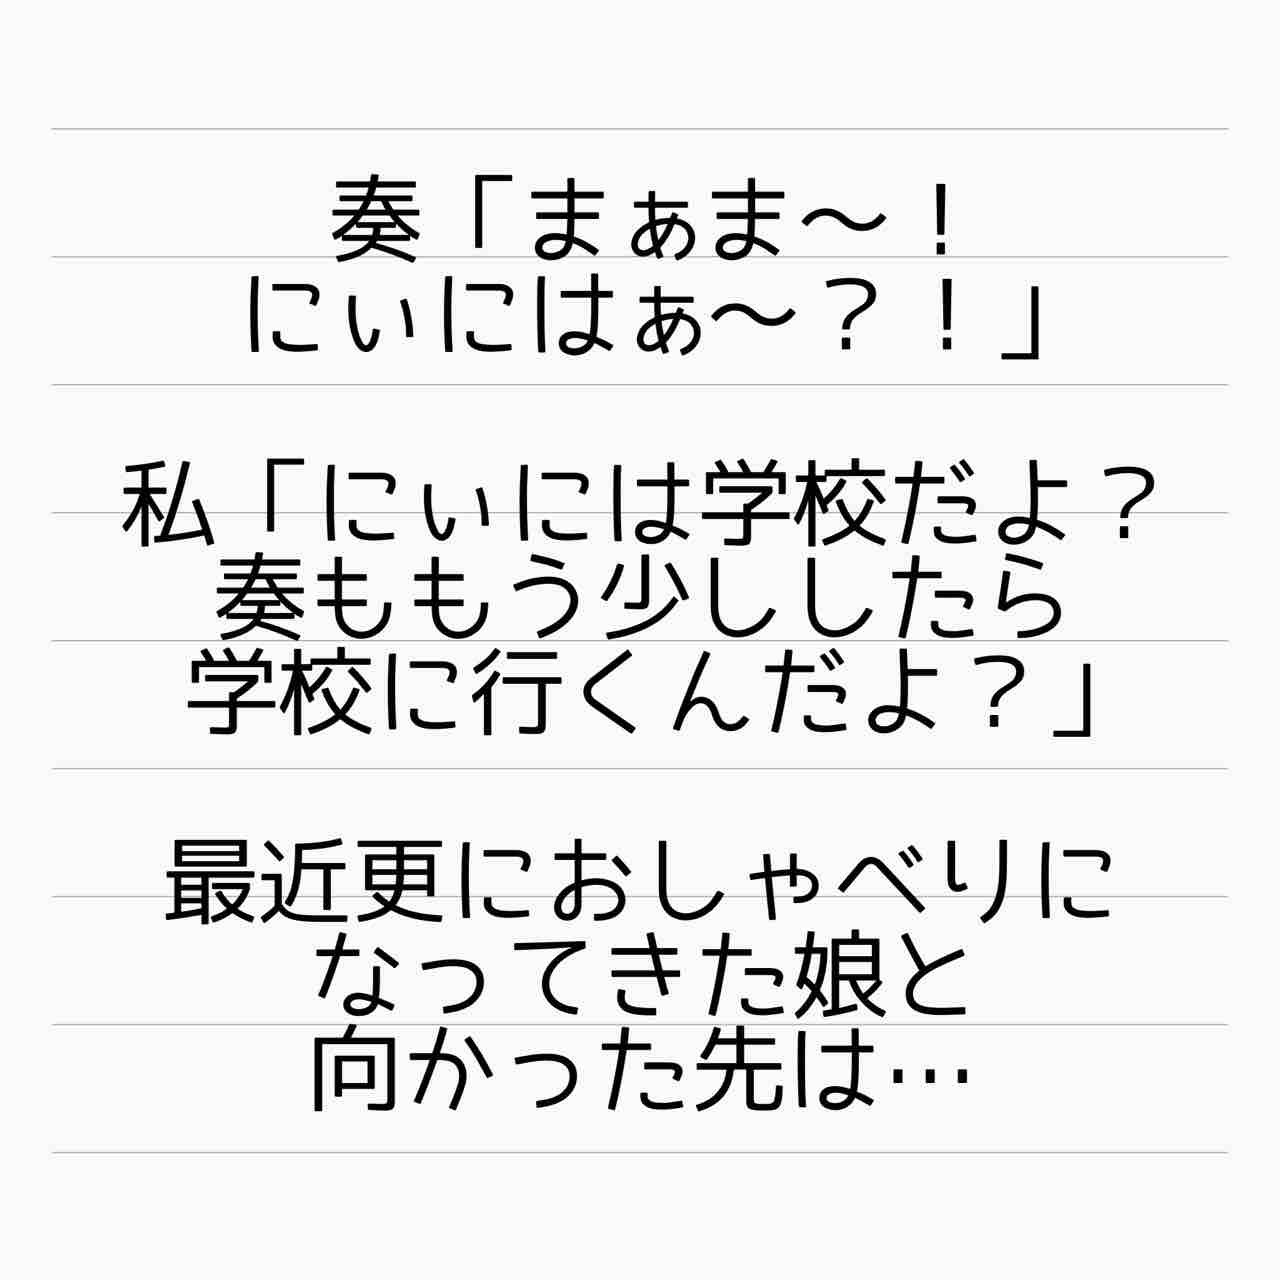 奏「まぁま〜！
にぃにはぁ〜？！」
私「にぃには学校だよ？
奏ももう少ししたら
学校に行くんだよ？」
最近更におしゃべりに
なってきた娘と
向かった先は…